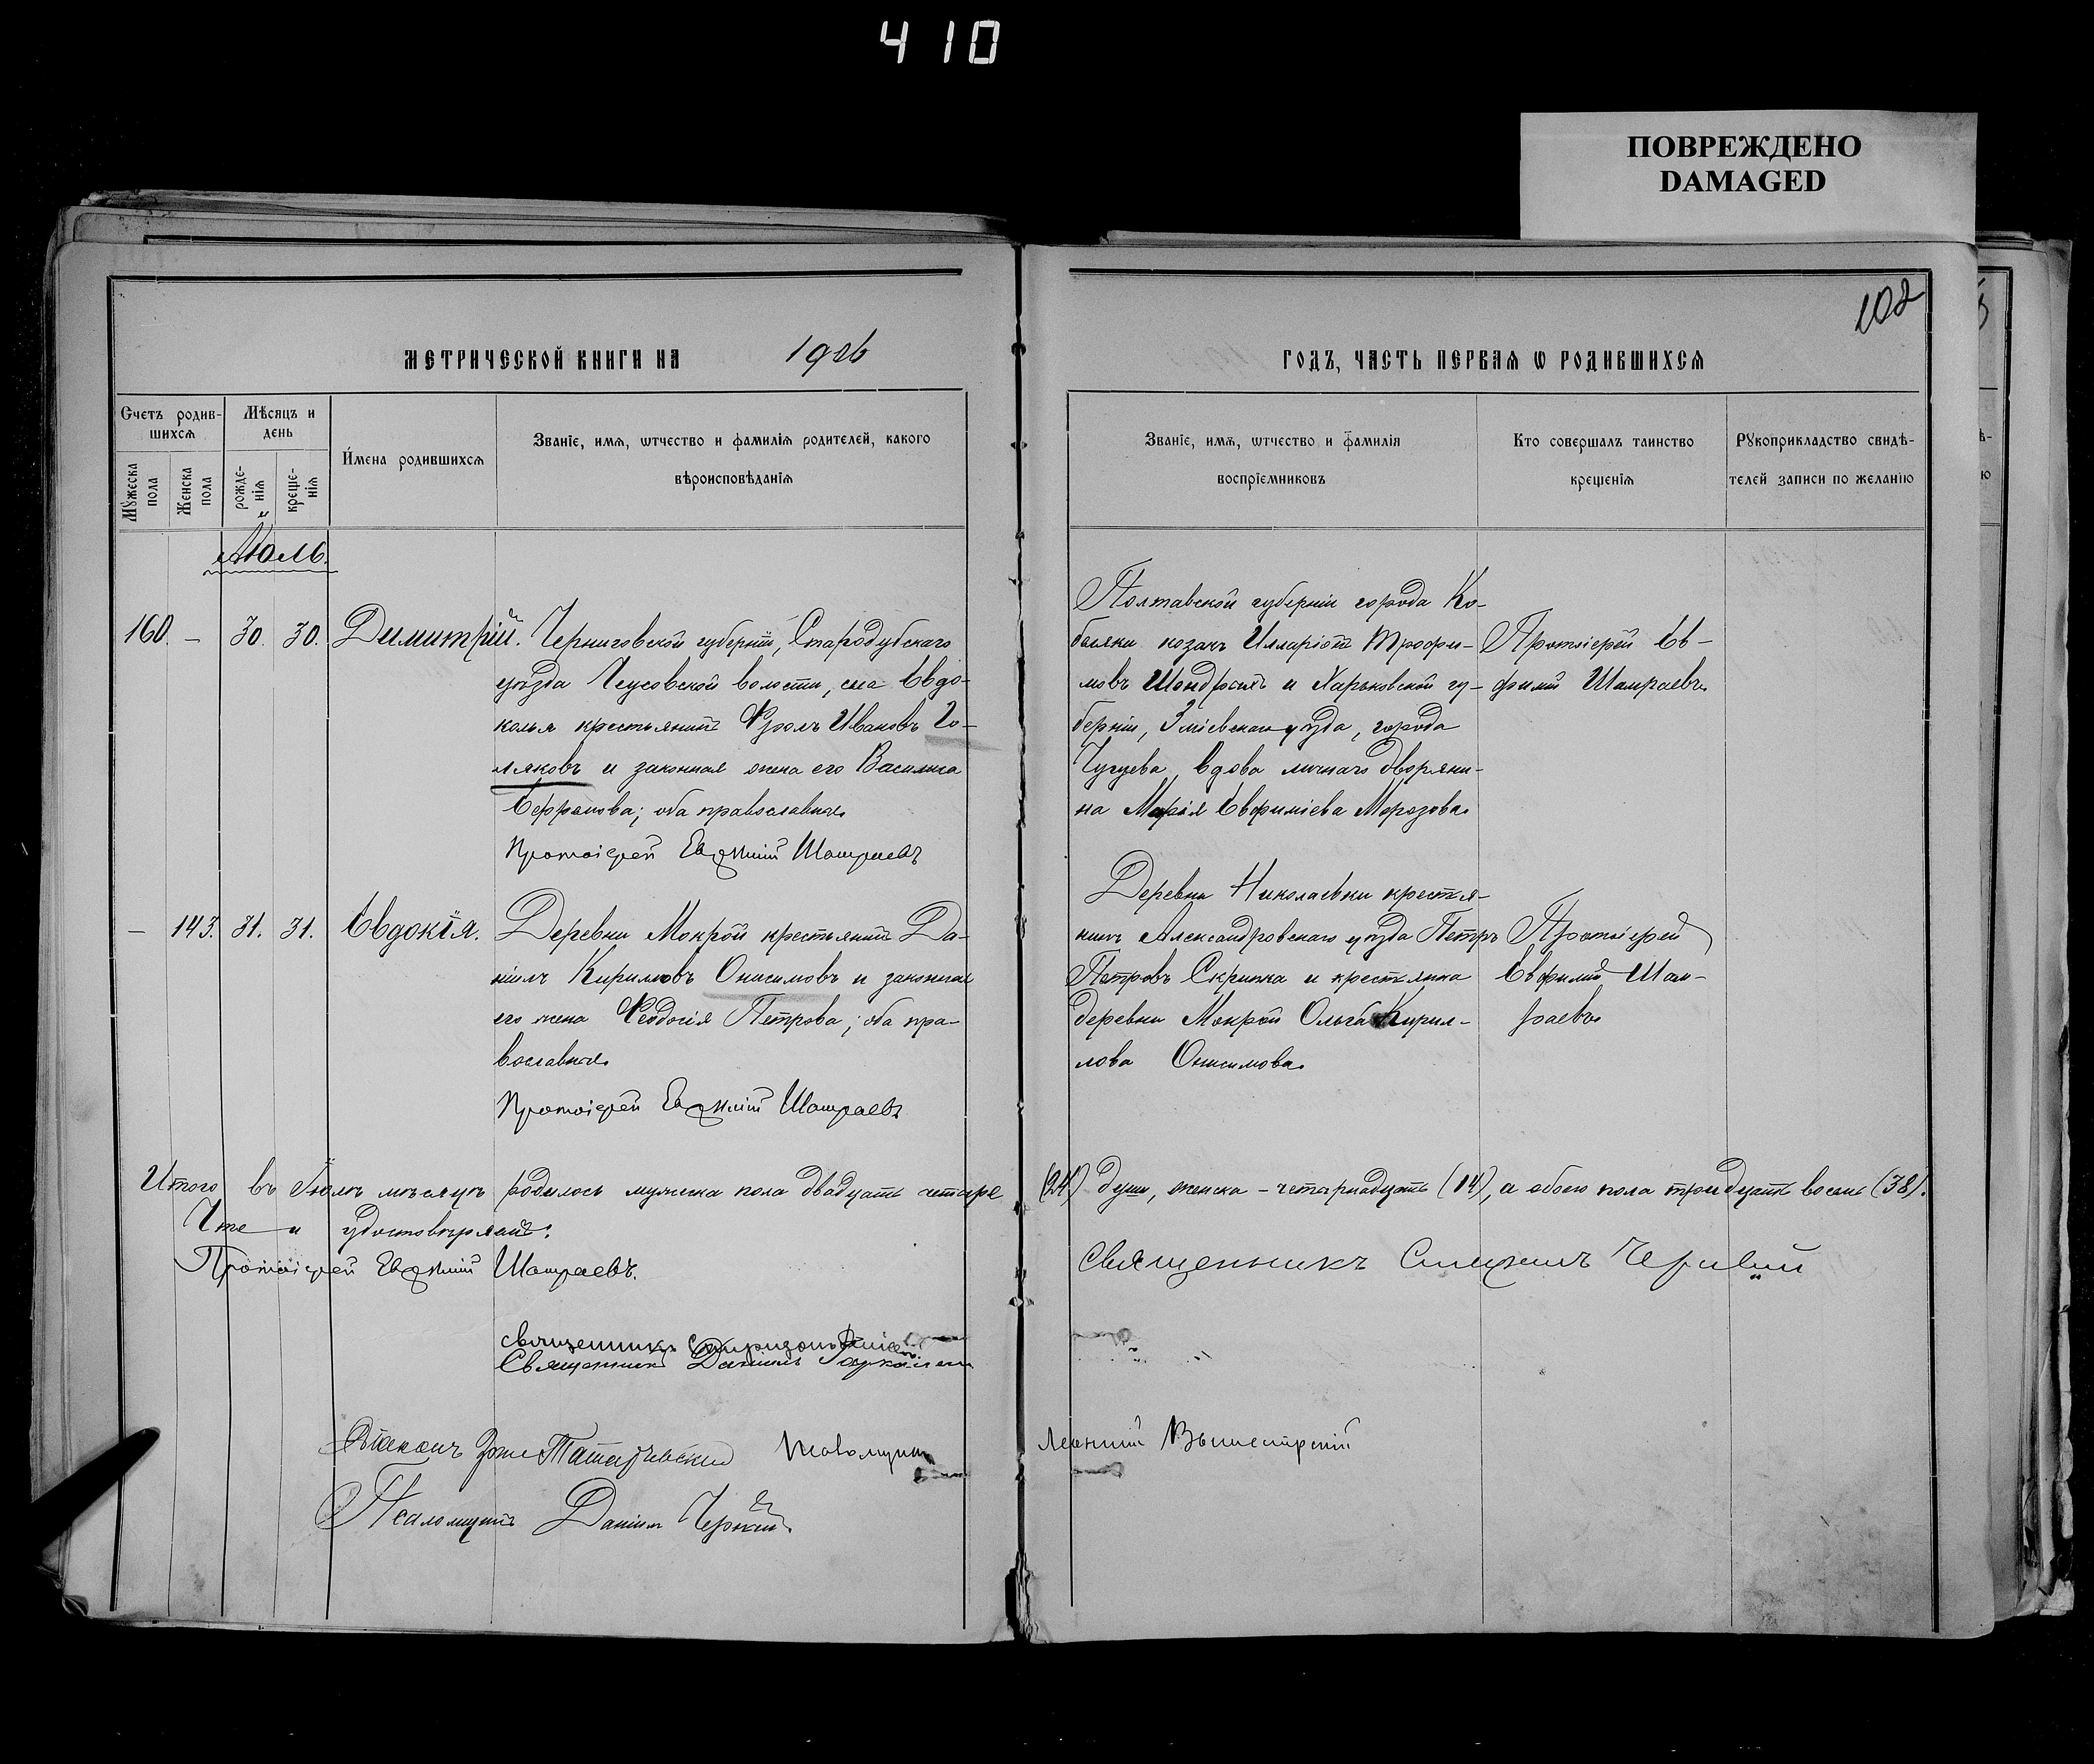 410
ПОВРЕЖДЕНО
DAMAGED
102
МЕТРИЧЕСКОЙ КНИГИ НА 1906
ГОДЪ, ЧАСТЬ ПЕРВАѦ Ѡ РОДИВШИХСѦ
Счетъ родив-
шихсѧ
Мѣсяцъ и
день
Мꙋжеска
пола
Женска
пола
рожде-
нїѧ
креще-
нїѧ
Имена родившихсѧ
Званїе, имѧ, ѡтчество и фамилїѧ родителей, какого
вѣроисповѣданїѧ
Званїе, имѧ, ѡтчество и фамилїѧ
воспрїемниковъ
Кто совершалъ таинство
крещенїѧ
Рꙋкоприкладство свидѣ-
телей записи по желанїю
Июль.
160. – 30. 30. Димитрій.
Черниговской губерніи, Стародубскаго
уѣзда Чеусовской волости, села Евдо-
колья крестьянинъ Фролъ Ивановъ Го-
ляковъ и законная жена его Василиса
Ефремова; оба православные
Протоіерей Евѳимій Шамраевъ
Полтавской губерніи города Ко-
беляки козакъ Илларіонъ Трофи-
мовъ и Харьковской гу-
берніи, Зміевскаго уѣзда, города
Чугуева вдова личнаго дворяни-
на Марія Евфиміева Морозова
Протоіерей Ев-
фимій Шамраевъ
– 143. 31. 31. Евдокія.
Деревни Мокрой крестьянинъ Да-
ніилъ Кириловъ Онисимовъ и законная
его жена Феодосія Петрова; оба пра-
вославные
Протоіерей Евѳимій Шамраевъ
Деревни Николаевки крестья-
нинъ Александровскаго уѣзда Петръ
Петровъ Скрипка и крестьянка
деревни Мокрой Ольга Кирил-
лова Онисимова
Протоіерей
Евфимій Шам-
раевъ
Итого въ Іюлѣ мѣсяцѣ родилось мужеска пола двадцать четыре (24) души, женска – четырнадцать (14), а обоего пола тридцать восемь (38).
и удостовѣряемъ:
Протоіерей Евѳимій Шамраевъ.
Священникъ
Священникъ
Священникъ Даніилъ
Діаконъ
Псаломщикъ
Псаломщикъ Даніилъ